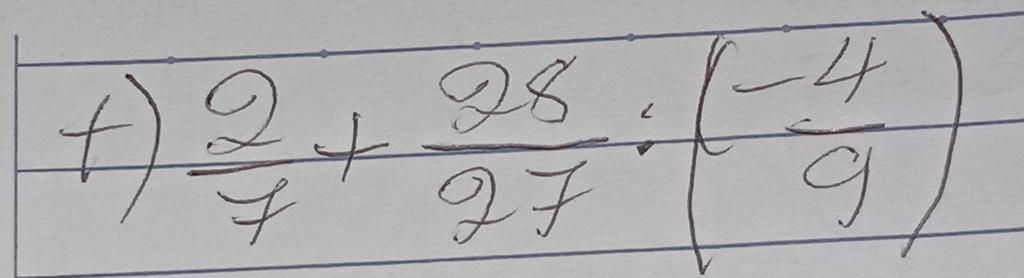 t) 2/7 + 28/27 : (-4/9)